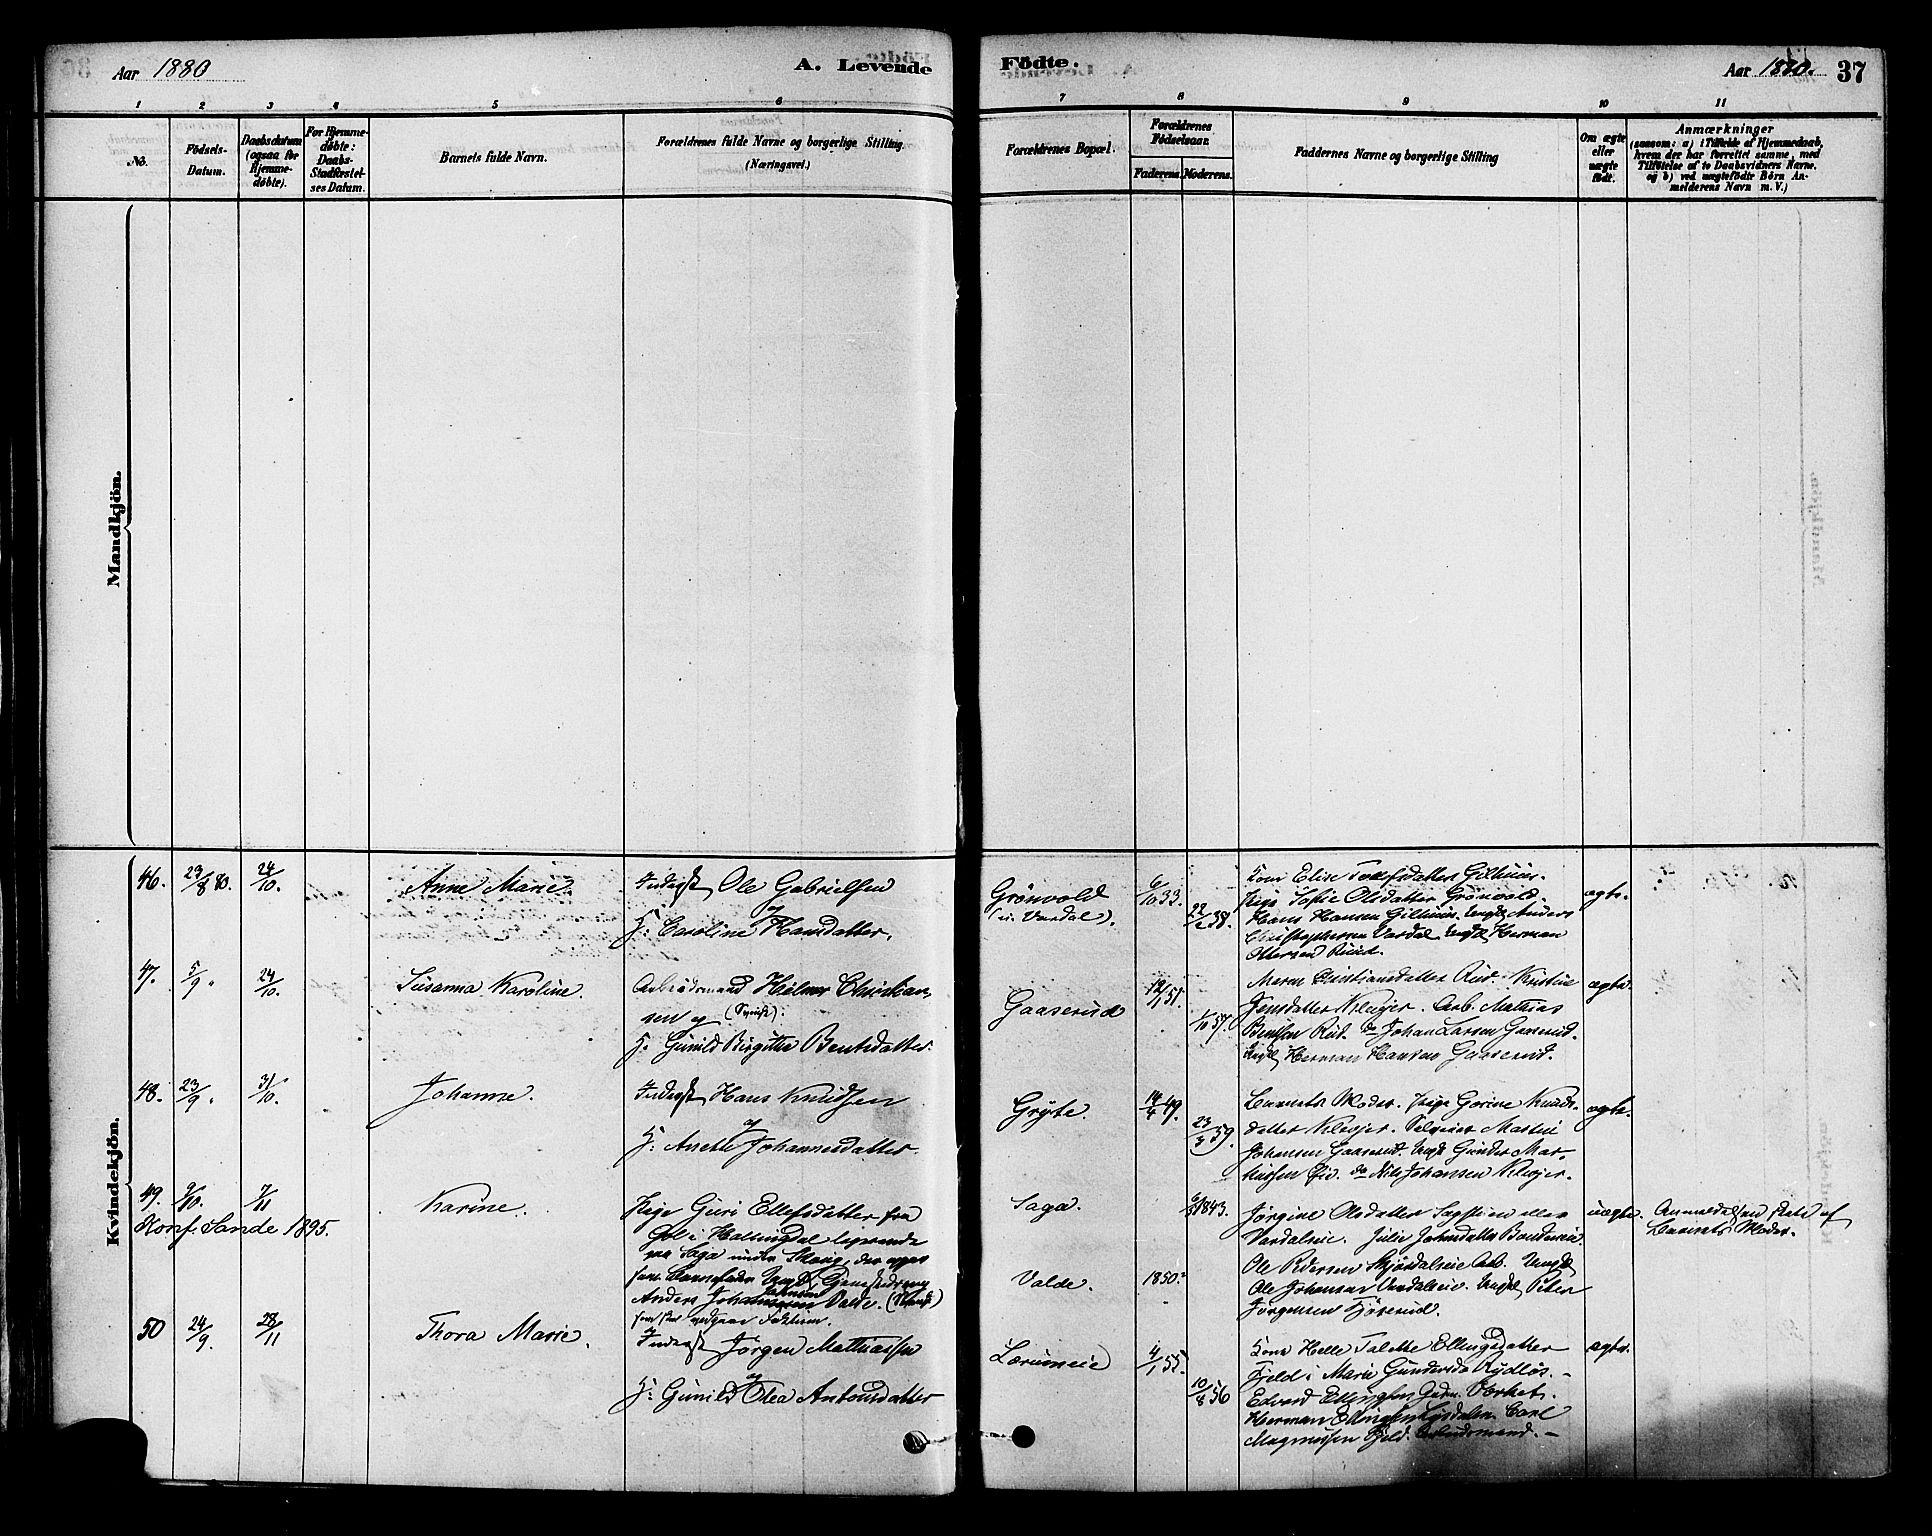 Aar 1880
A. Levende
Födte.
Aar 1880.
37
1
2
3
4
5
6
7
8
9
10
11
No.
Födsels-
Datum.
Daabsdatum
(ogsaa for
Hjemme-
døbte).
For Hjemme-
døbte:
Daabs-
Stadfæstel-
ses Datum.
Barnets fulde Navn.
Forældrenes fulde Navne og borgerlige Stilling.
(Næringsvei.)
Forældrenes Bopæl.
Forældrenes
Födselsaar.
Faderens.
Moderens.
Faddernes Navne og borgerlige Stilling
Om ægte
eller
uægte
født.
Anmærkninger
(saasom: a) i Tilfælde af Hjemmedaab,
hvem der har forrettet samme, med
Tilføielse af to Daabsvidners Navne,
og b) ved uægtefødte Börn An-
melderens Navn m. V.)
Mandkjön.
Kvindekjön.
46.
23/8 80.
24/10.
Anne Marie.
Inderst Ole Gabrielsen
og
H: Caroline Hansdatter.
Grönvold
(i Vardal).
6/10 33.
22/2 38.
Kone Elise Tollefsdatter Gilhuus.
Pige Sofie Olsdatter Grönvold.
Hans Hansen Gilhuus. Ungk Anders
Christophersen Vardal. Ungk Herman
Ottersen Ruud.
ægte.
47.
5/9 "
24/10.
Susanna Karoline.
Arbeidsmand Hilmer Christian-
sen og (Svensk):
H. Gunild Birgitte Bentsdatter.
Gaaserud
12/1 51.
1/10 57.
Maren Christiansdatter Rud. Kristine
Jensdatter Klevjer. Arb. Mathias
Bentsen Rud. do Johan Larsen Gaaserud.
Ungk Herman Hansen Gaaserud.
ægte.
48.
23/9 "
31/10.
Johanne.
Inderst Hans Knudsen
og
H: Anette Johannesdatter.
Gryte.
14/4 49.
23/3 59.
Barnets Moder. Pige Gorine Knuds-
datter Klevjer. Selveier Martin
Johansen Gaaserud. Ungk Gunder Mar-
thisen do Nils Johansen Klevjer.
ægte.
49.
9/10.
7/11
Karine.
Konf. Sande 1895.
Pige Guri Ellefsdatter fra
Gol i Hallingdal logerende
paa Saga under Skoug, der opgav
som Barnefader Ungk Gaardsdreng
Anders Johansen Valde.
Saga.
Valde.
1850.
6/5 1843.
Jörgine Olsdatter Sagstien eller
Vardalseie. Julie Johnsdatter
Ole Pedersen Skjørdalseie Arb. Ungk
Ole Johansen Vardalseie. Ungk Peter
Jørgensen Gjøserud.
uægte.
Anmeldelsen skete af
Barnets Moder.
50
24/9.
28/11
Thora Marie.
Inderst Jörgen Mathiassen
og
H: Gunild Olea Antonsdatter
Lærumeie
4/1 55.
10/8 56
Kone Helle Talette Ellingsdatter
Fjeld i Marie Gundersdr Rydlös.
Edvard Ellingsen Værket.
Herman Ellingsen Lysdalen. Carl
Magnussen Fjeld. Arbeidsmand.
ægte.